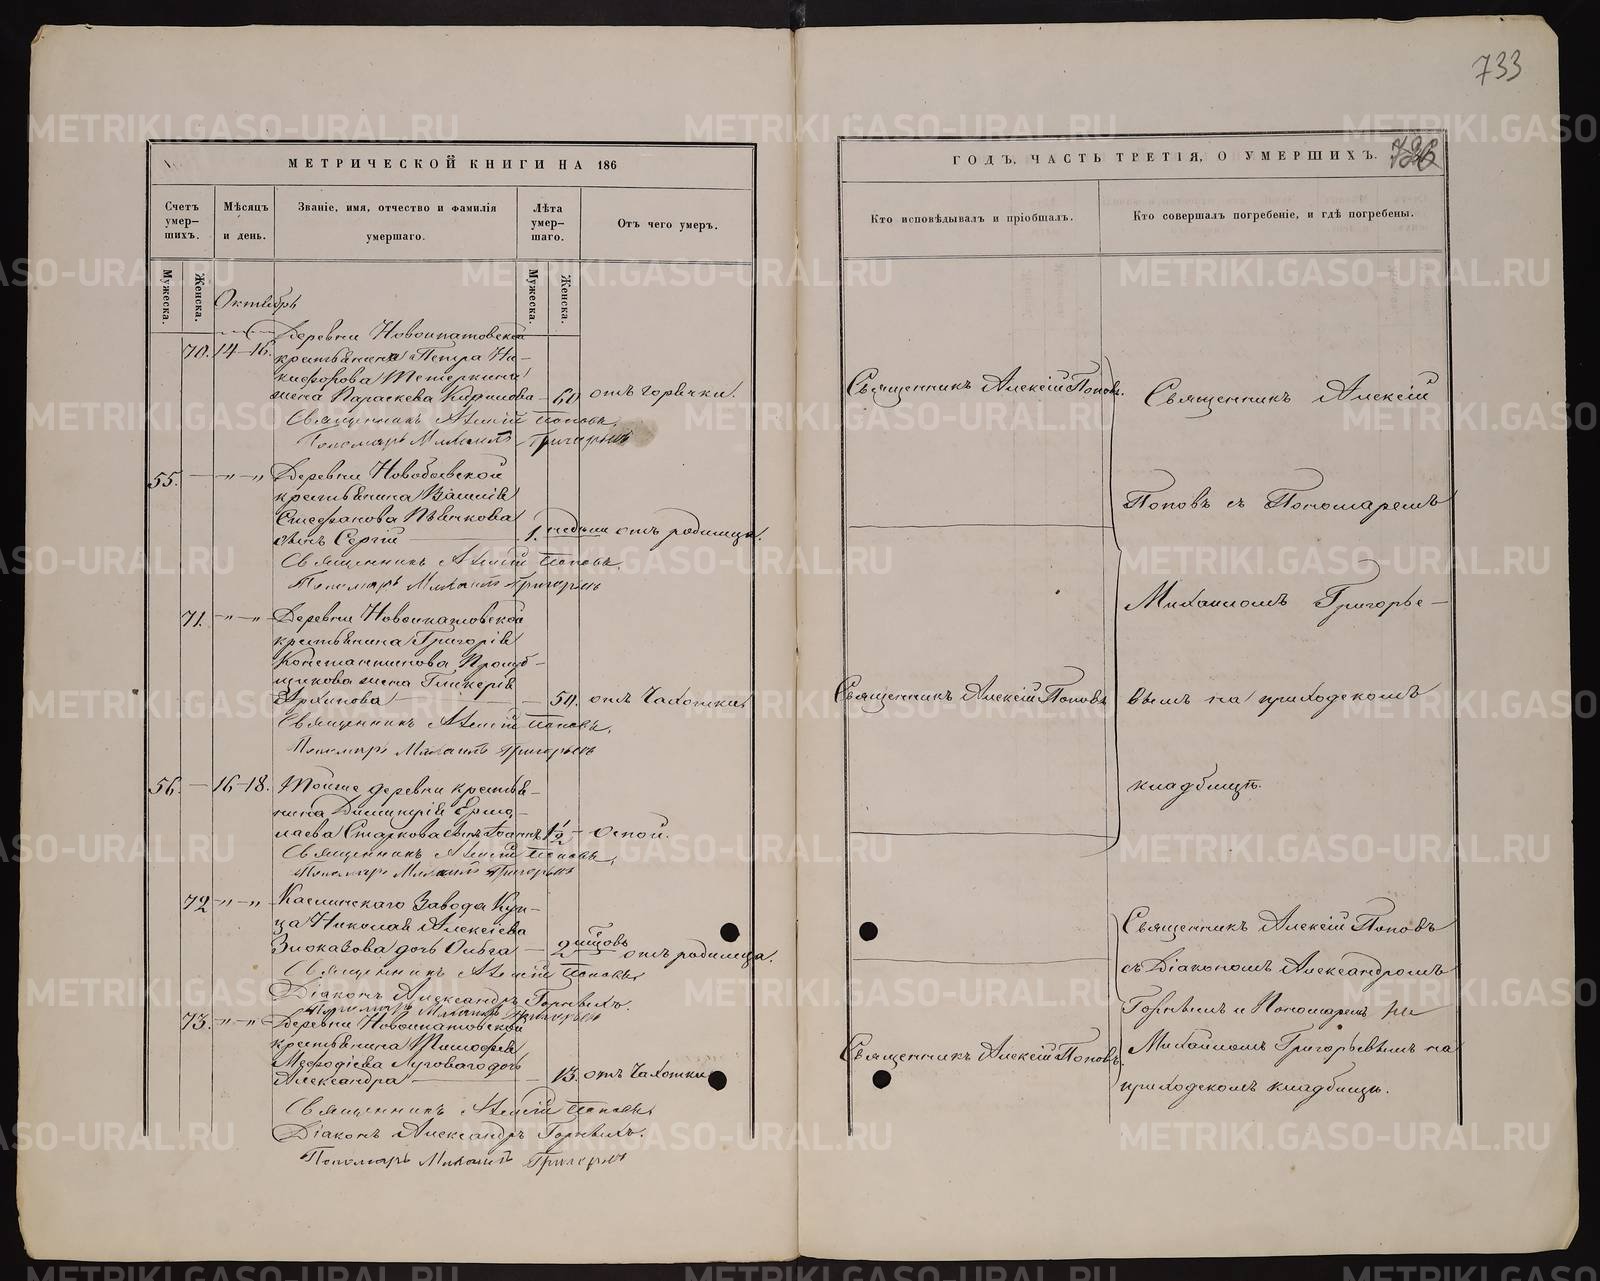 733
МЕТРИЧЕСКОЙ КНИГИ НА 186
Счетъ умер-шихъ.
Мѣсяцъ и день.
Званіе, имя, отчество и фамилія умершаго.
Лѣта умер-шаго.
Отъ чего умеръ.
Мужеска.
Женска.
Мужеска.
Женска.
Октябрь
Деревни Новоипатовской
70. 14 - 16. крестьянина Петра Ни-
кифорова Тетеркина
жена Параскева Карпова - 60 отъ горячки.
Священникъ Алексій Поповъ.
Пономарь Михаилъ Григорьевъ
55. — „ — „ Деревни Новобаевской
крестьянина Василія
Стефанова Пьянкова
сынъ Сергій — 1. недѣли отъ родимца.
Священникъ Алексій Поповъ.
Пономарь Михаилъ Григорьевъ
71. „ — „ Деревни Новоипатовской
крестьянина Григорія
Константинова
жена Гликерія
Архипова — 50. отъ чахотки
Священникъ Алексій Поповъ.
Пономарь Михаилъ Григорьевъ
56. — 16-18. Тойже деревни крестья-
нина Димитрія Ермо-
лаева Старкова сынъ Іоаннъ 1½ - Оспой.
Священникъ Алексій Поповъ.
Пономарь Михаилъ Григорьевъ
72 „ — „ Каслинскаго Завода Куп-
ца Николая Алексіева
Злоказова дочь Ольга — 2 мцовъ отъ родимца.
Священникъ Алексій Поповъ
Діаконъ Александръ Горныхъ.
Пономарь Михаилъ Григорьевъ
73. „ — „ Деревни Новоипатовской
крестьянина Тимофея
Меѳодіева Луговаго дочь
Александра — 13. отъ чахотки
Священникъ Алексій Поповъ
Діаконъ Александръ Горныхъ.
Пономарь Михаилъ Григорьевъ
ГОДЪ, ЧАСТЬ ТРЕТІЯ, О УМЕРШИХЪ.
Кто исповѣдывалъ и пріобщалъ.
Кто совершалъ погребеніе, и гдѣ погребены.
Священникъ Алексій Поповъ.
Священникъ Алексій Поповъ
Священникъ Алексій Поповъ.
Священникъ Алексій
Поповъ съ Пономаремъ
Михаиломъ Григорье-
вымъ на приходскомъ
кладбищѣ.
Священникъ Алексій Поповъ
съ Діакономъ Александромъ
Горныхъ и Пономаремъ
Михаиломъ Григорьевымъ на
приходскомъ кладбищѣ.
METRIKI.GASO-URAL.RU